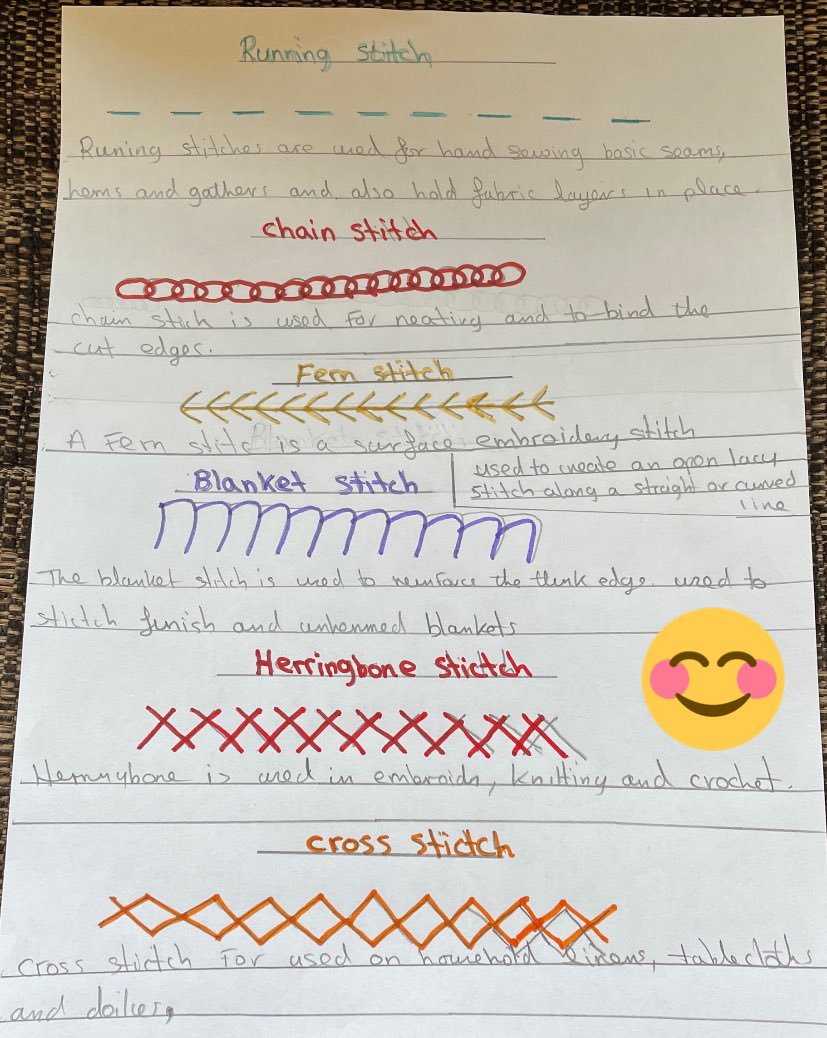 Running stitch
Runing stitches are used for hand sewing basic seams,
hems and gathers and also hold fabric layers in place.
chain stitch
chain stich is used for neating and to bind the
cut edges.
Fern stitch
A Fern stitc is a surface embroidery stitch
used to create an open lacy
stitch along a straight or curved
line
Blanket stitch
The blanket stitch is used to reinforce the edge. used to
stictch finish and unhemmed blankets
Herringbone stictch
is used in embroidn, knitting and crochet.
cross stictch
cross stictch For used on household linens, tablecloths
and doilies,